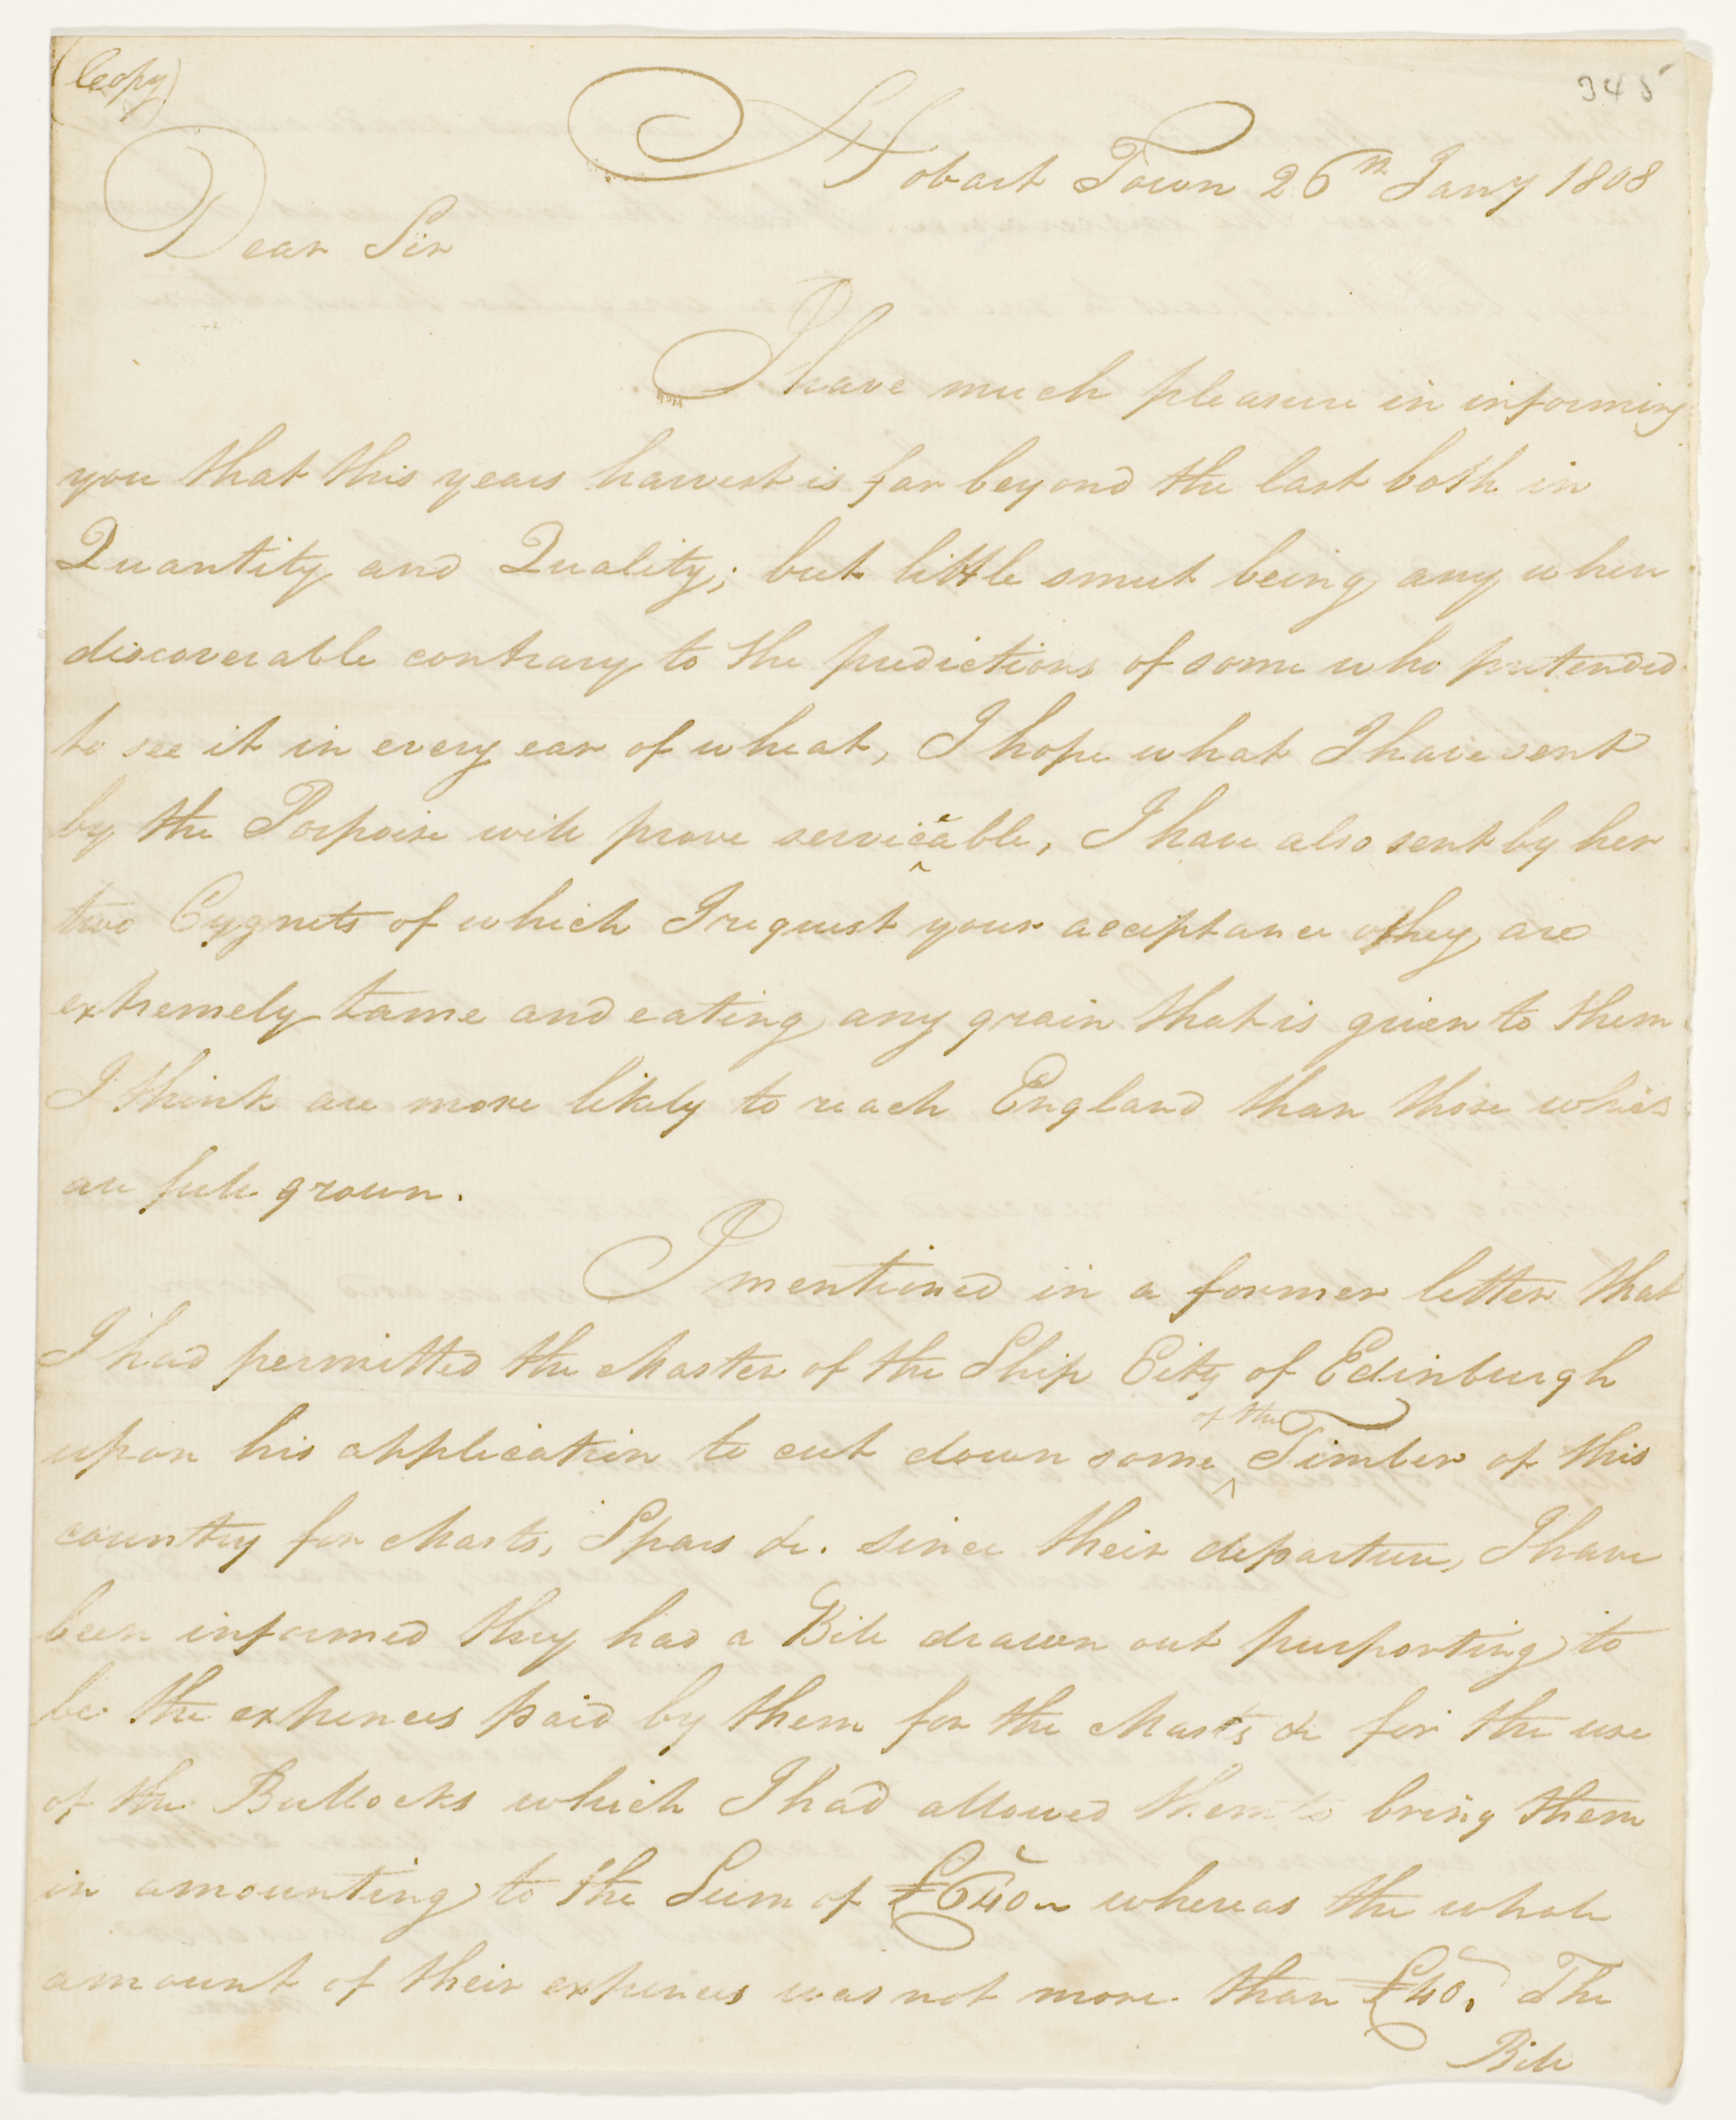 (Copy)
345
Hobart Town 26th Jany 1808
Dear Sir
I have much pleasure in informing
you that this years harvest is far beyond the last both in
Quantity and Quality; but little smut being any where
discoverable contrary to the predictions of some who pretended
to see it in every ear of wheat, I hope what I have sent
by the Porpoise will prove serviceable, I have also sent by her
two Cygnets of which I request your acceptance they are
extremely tame and eating any grain that is given to them
I think are more likely to reach England than those which
are full grown.
I mentioned in a former letter that
I had permitted the Master of the Ship City of Edinburgh
upon his application to cut down some of the Timber of this
country for Masts, Spars &c. since their departure, I have
been informed they had a Bill drawn out purporting to
be the expences paid by them for the Masts &c for the use
of the Bullocks which I had allowed them to bring them
in amounting to the Sum of £640 whereas the whole
amount of their expences was not more than £40. The
Bill